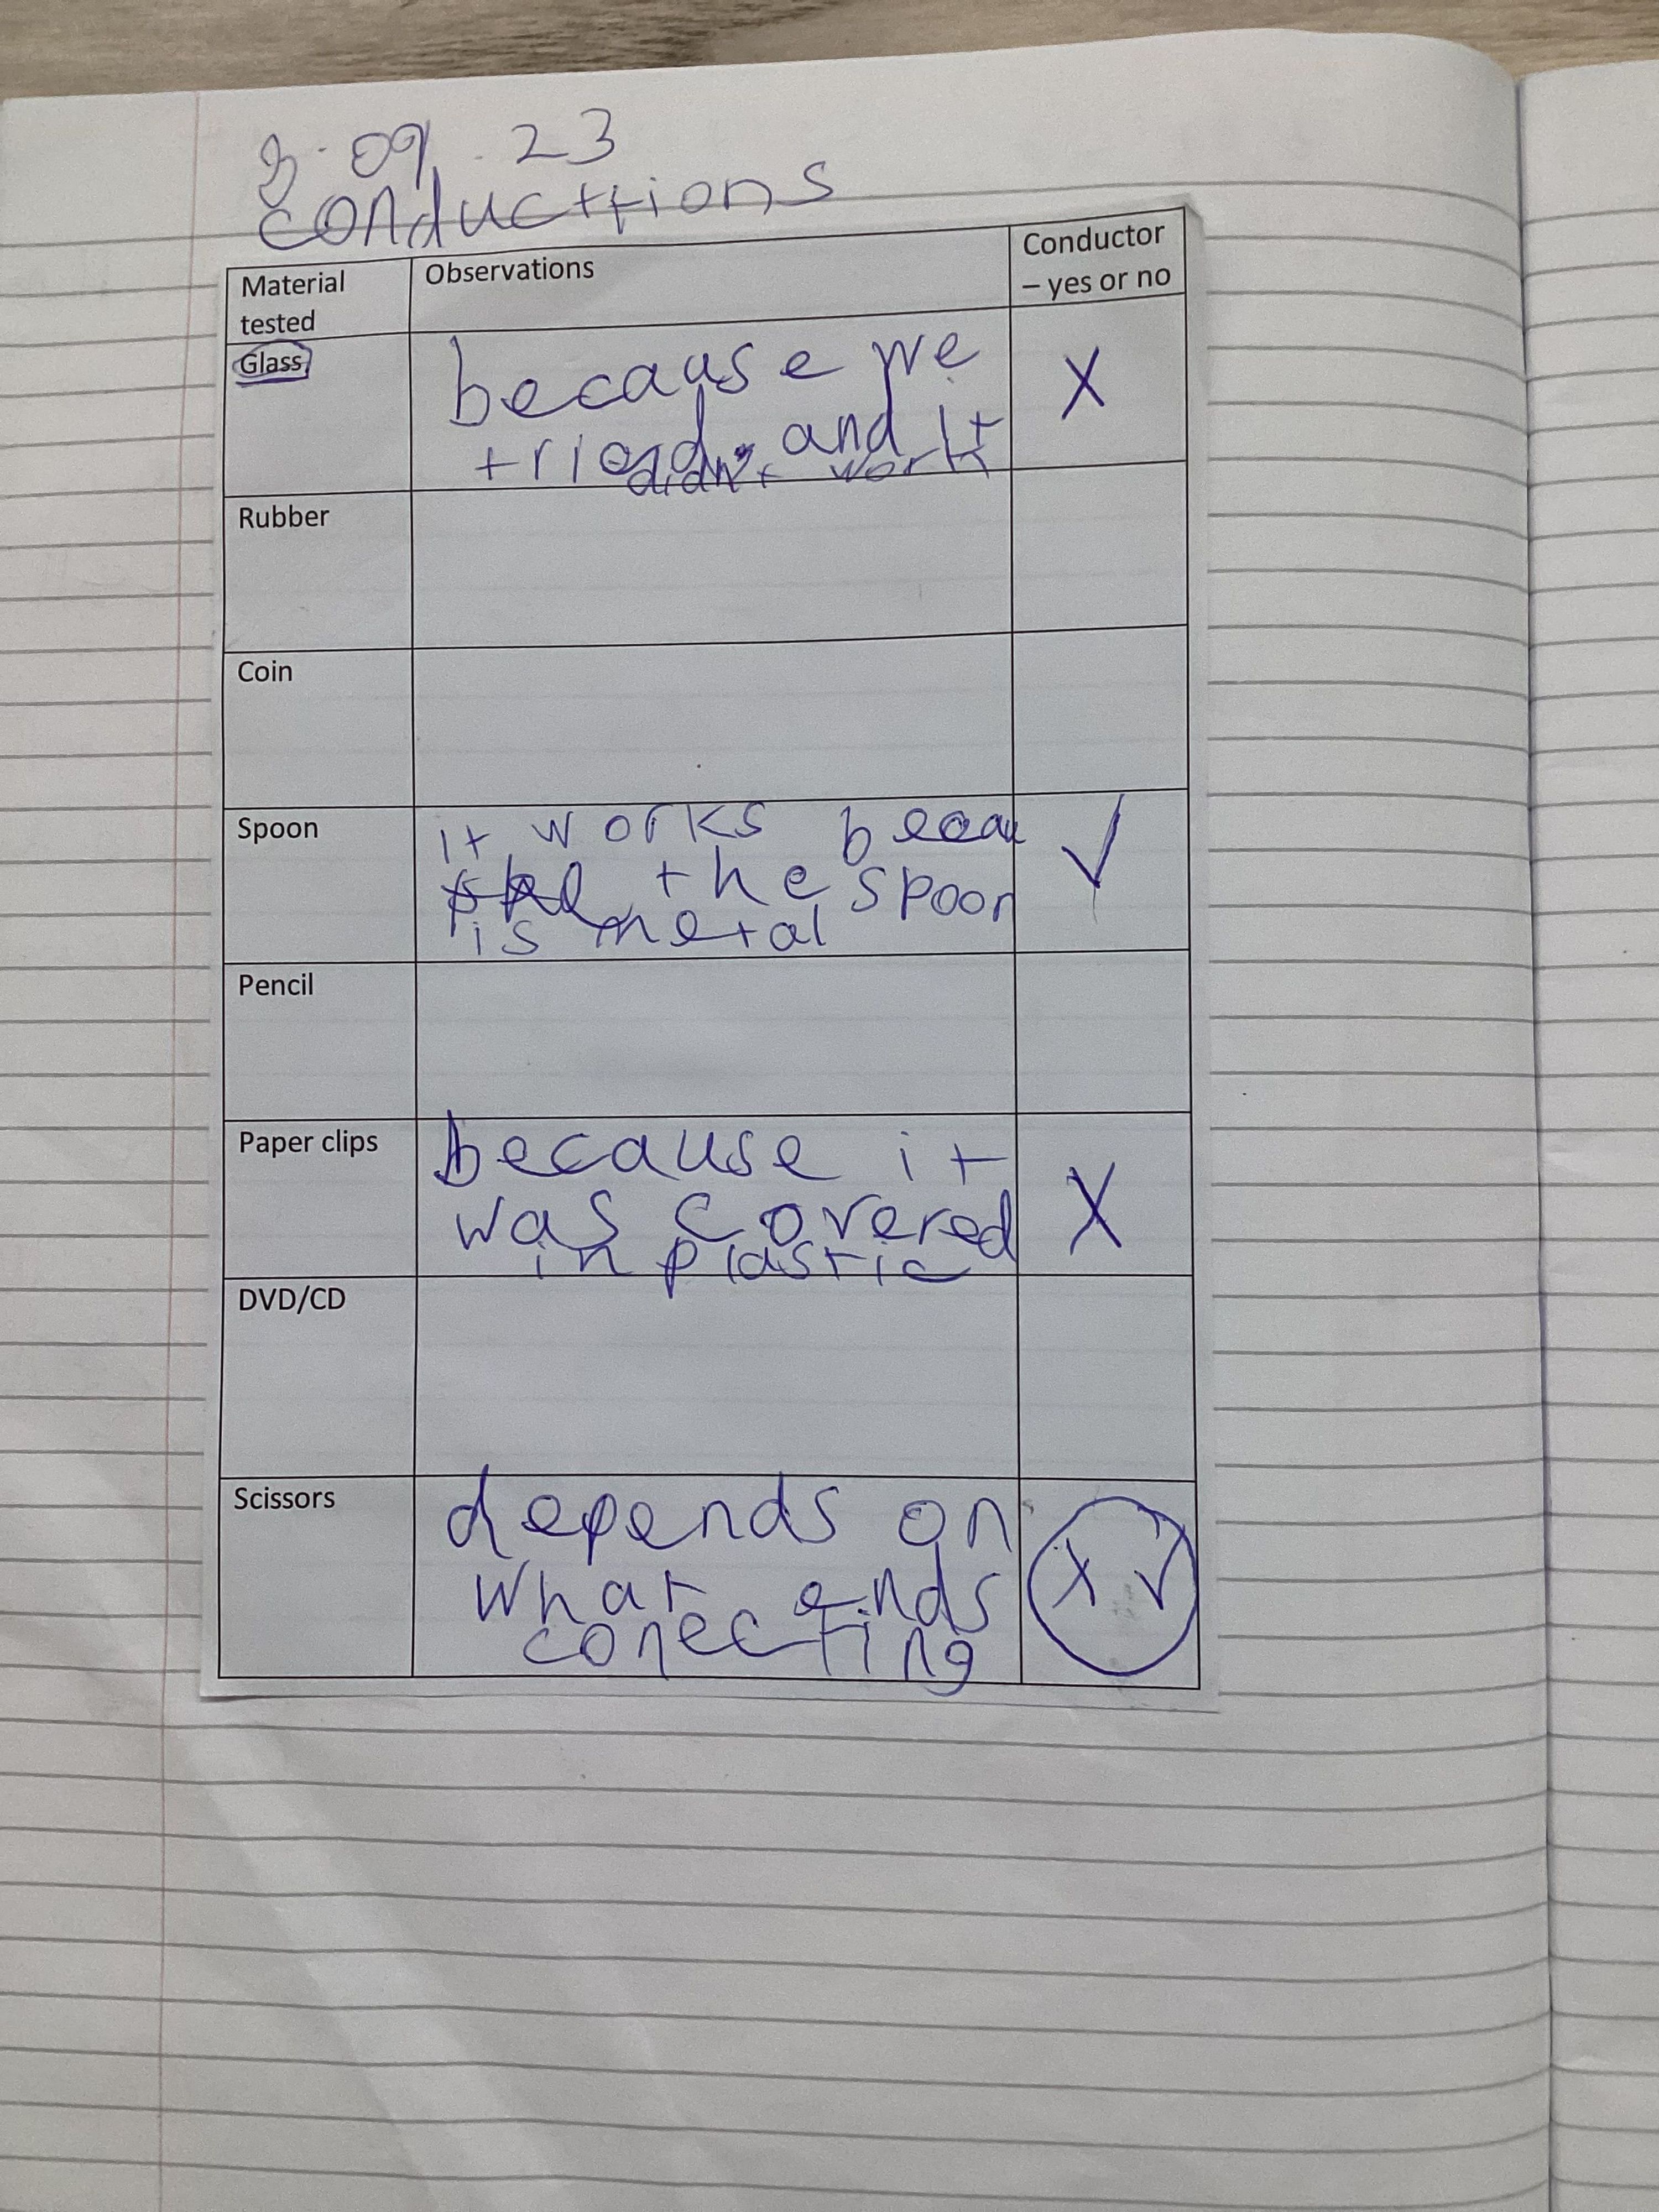 8.09.23
conducttions
Material tested
Observations
Conductor – yes or no
Glass
because we
triedd and it
didnt work
X
Rubber
Coin
Spoon
it works becau
the spoon
is metal
✓
Pencil
Paper clips
because it
was covered
in plastic
X
DVD/CD
Scissors
depends on
what ends
conecting
X ✓